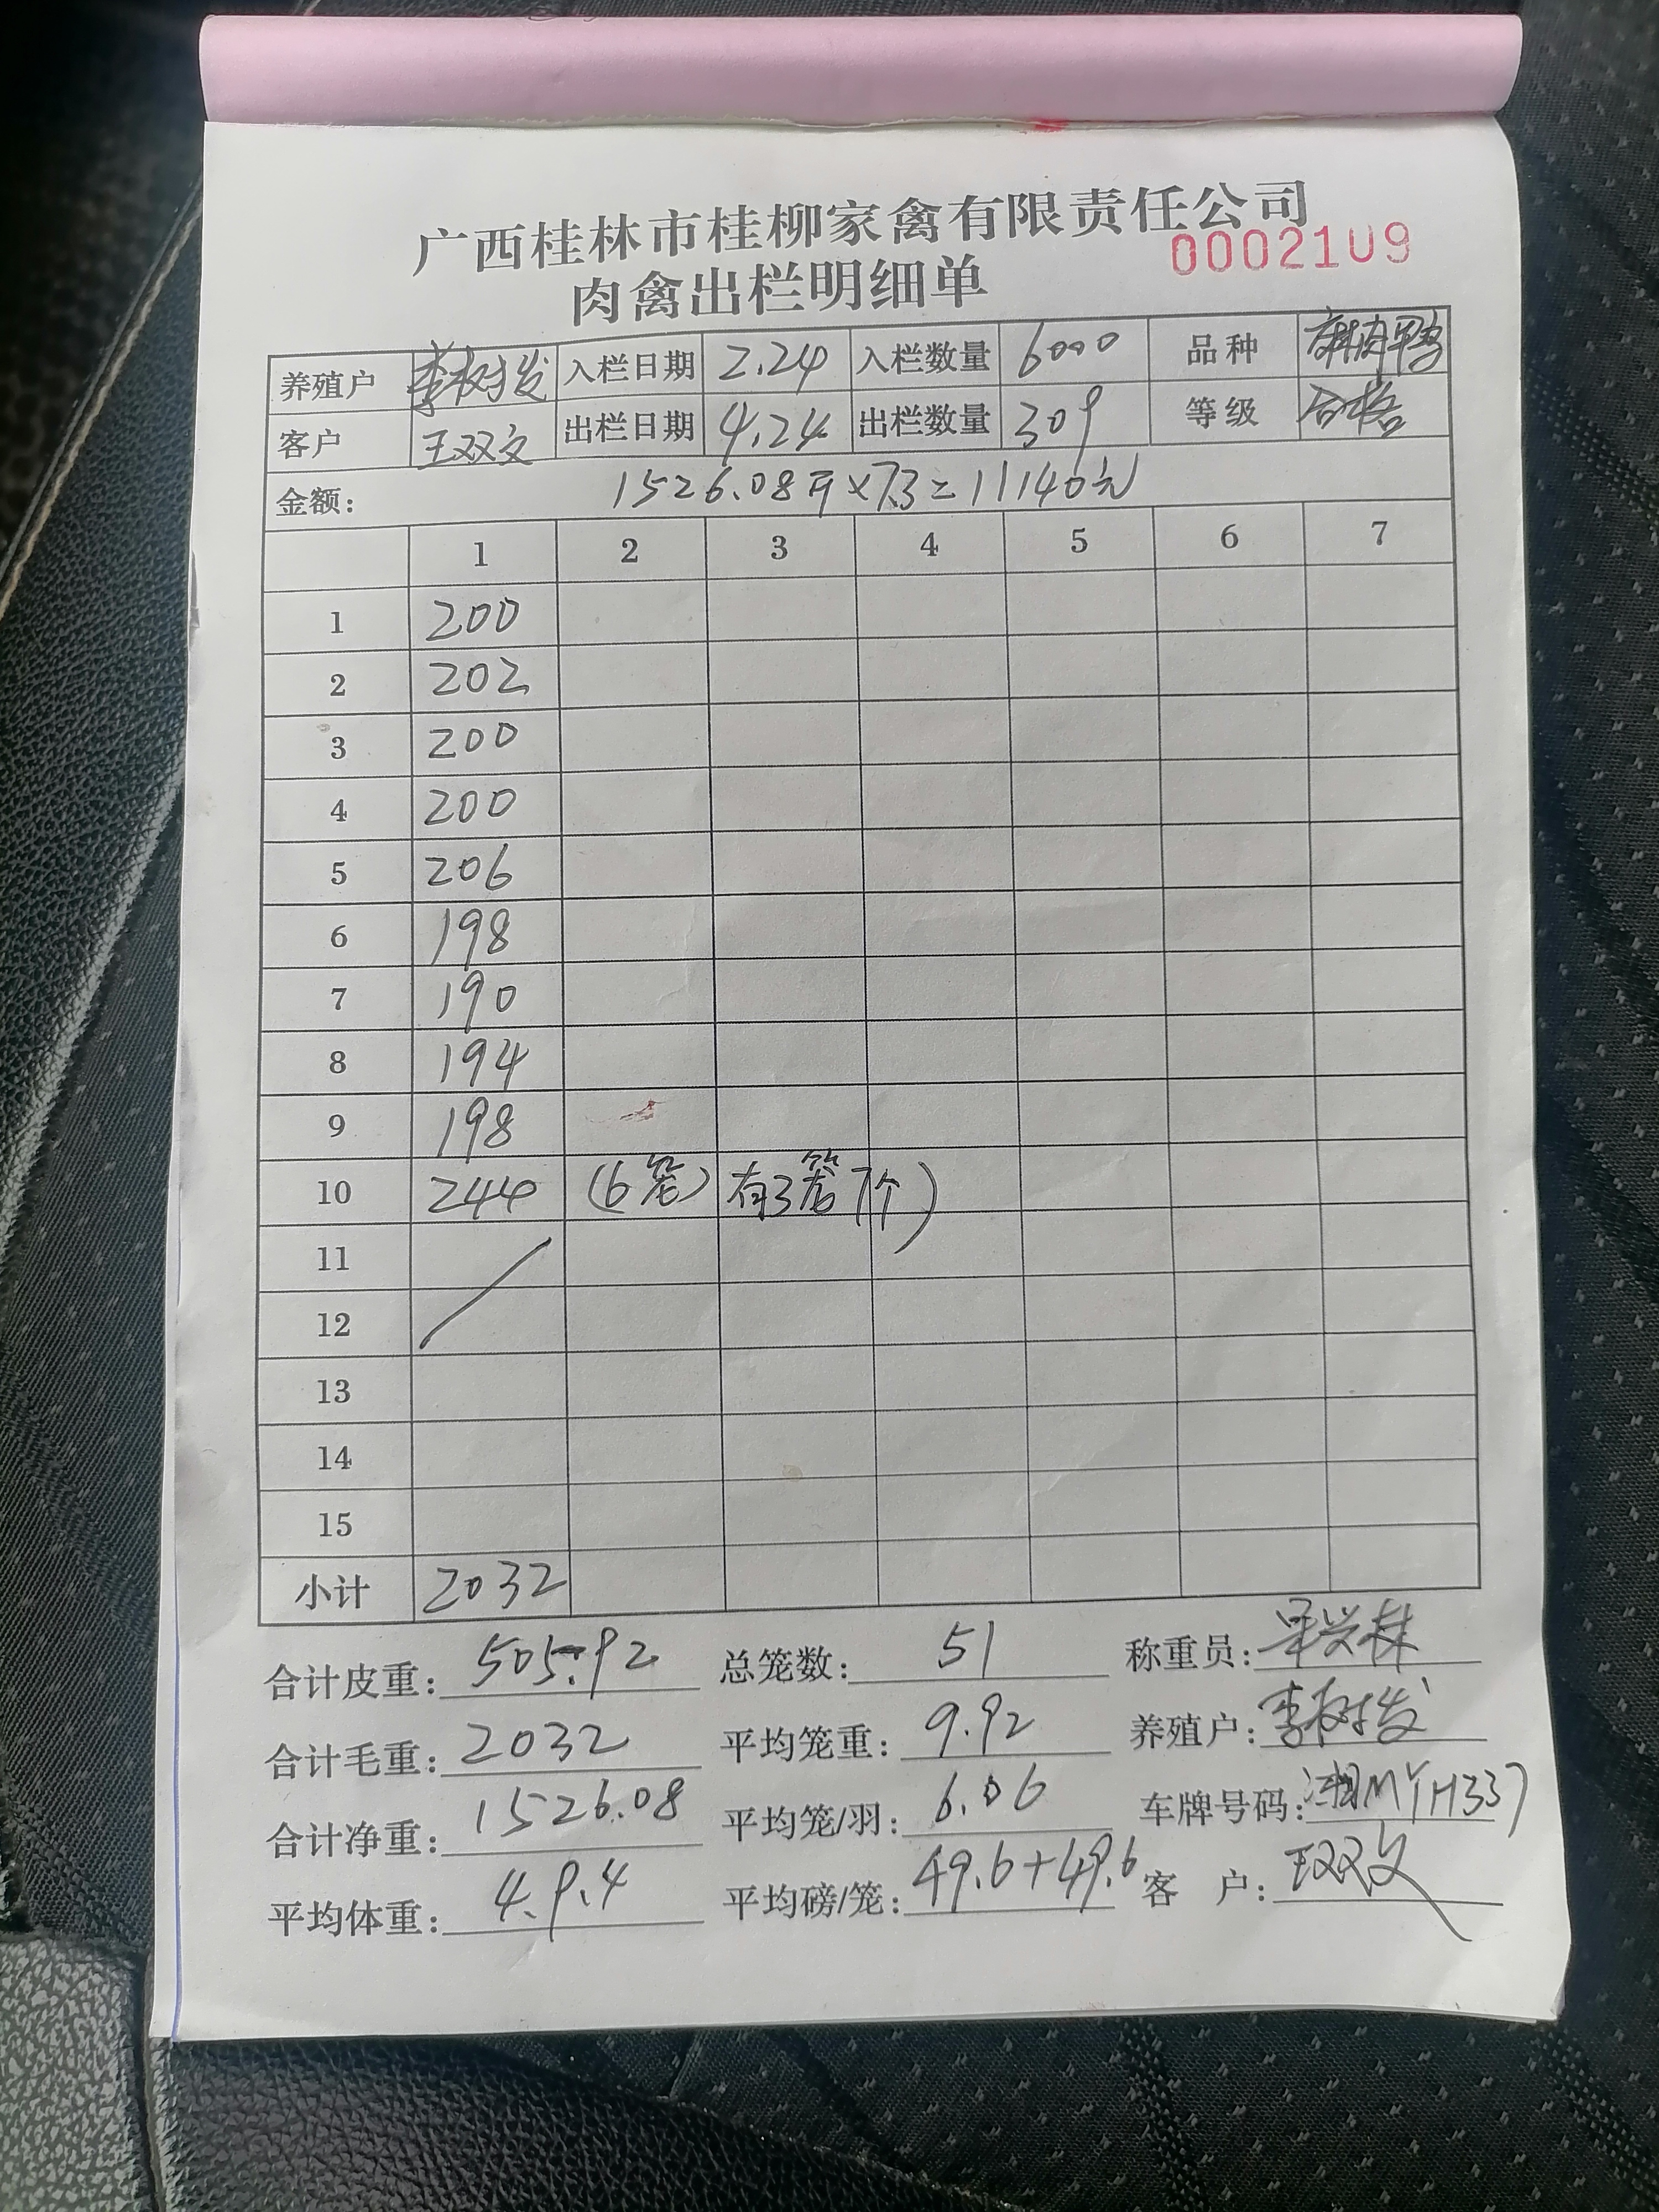 广西桂林市桂柳家禽有限责任公司
肉禽出栏明细单 0002109
养殖户 李树发 入栏日期 2.24 入栏数量 6000 品种
客户 王双文 出栏日期 4.24 出栏数量 309 等级 合格
金额: 1526.08斤×7.3=11140元
1 2 3 4 5 6 7
1 200
2 202
3 200
4 200
5 206
6 198
7 190
8 194
9 198
10 244 (6笼) 有3笼7个)
11
12
13
14
15
小计 2032
合计皮重: 505.92 总笼数: 51 称重员:
合计毛重: 2032 平均笼重: 9.92 养殖户: 李树发
合计净重: 1526.08 平均笼/羽: 6.06 车牌号码: 湘MYH337
平均体重: 4.9.4 平均磅/笼: 49.6+49.6 客 户: 王双文